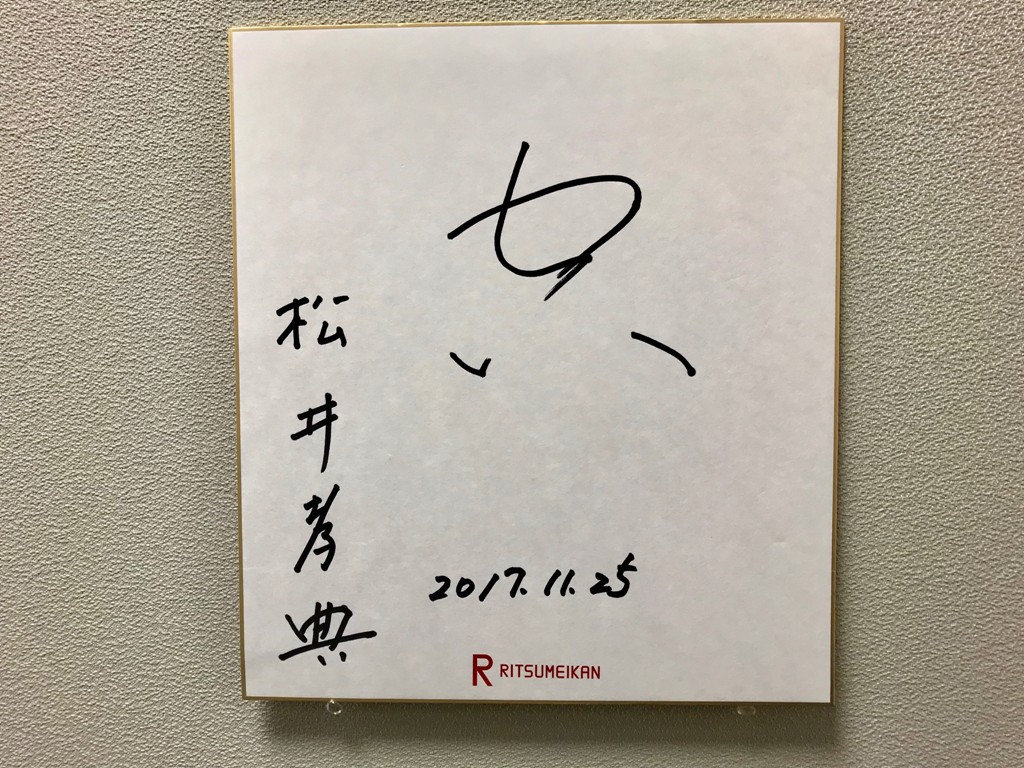 松井孝典
2017.11.25
R RITSUMEIKAN